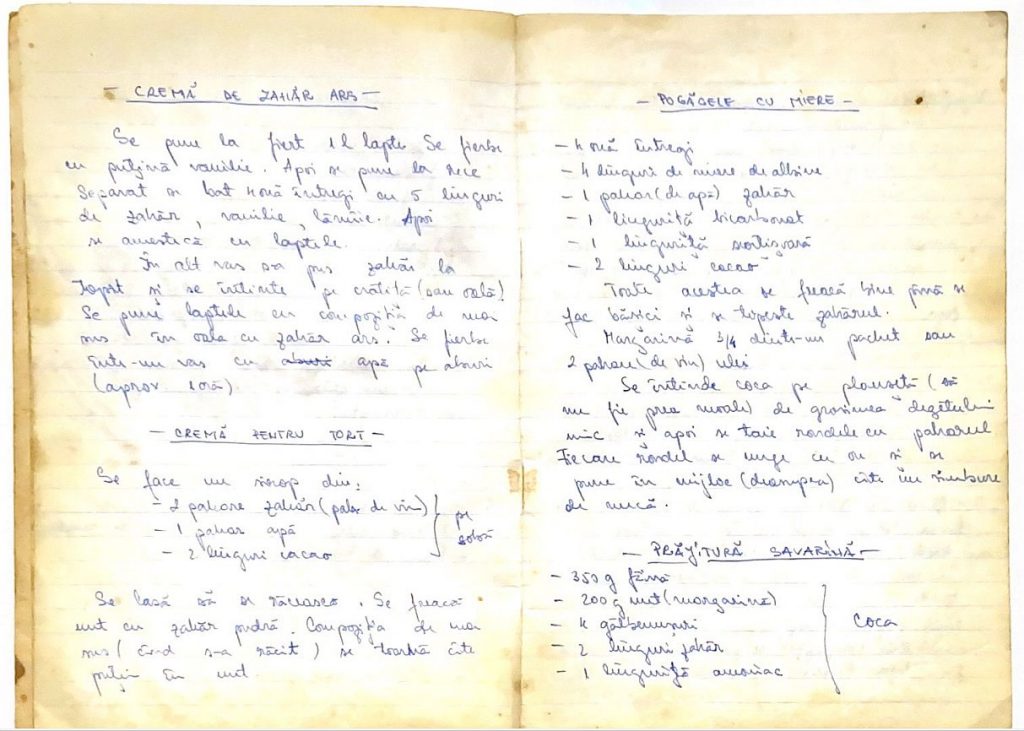 - CREMĂ DE ZAHĂR ARS -
Se pune la fiert 1 l lapte Se fierbe
cu puțină vanilie. Apoi se pune la rece
Separat se bat 4 ouă întregi cu 5 linguri
de zahăr, vanilie, lămîie. Apoi
se amestecă cu laptele.
În alt vas se pus zahăr la
topit și se întinde pe crătiță (sau oală)
Se pune laptele cu compoziția de mai
sus în oala cu zahăr ars. Se fierbe
într-un vas cu apă pe aburi
(aprox 1 oră)
- CREMĂ PENTRU TORT -
Se face un sirop din:
- 2 pahare zahăr (pahar de vin)
- 1 pahar apă
- 2 linguri cacao
pe
sobă
Se lasă să se răcească. Se freacă
unt cu zahăr pudră. Compoziția de mai
sus (cînd s-a răcit) se toarnă cîte
puțin în unt.
- POGĂCELE CU MIERE -
- 4 ouă întregi
- 4 linguri de miere de albine
- 1 pahar (de apă) zahăr
- 1 linguriță bicarbonat
- 1 linguriță scorțișoară
- 2 linguri cacao
Toate acestea se freacă bine pînă se
fac bășici și se topește zahărul.
Margarină 3/4 dintr-un pachet sau
2 pahare (de vin) ulei
Se întinde coca pe planșetă (să
nu fie prea moale) de grosimea degetului
mic și apoi se taie rondele cu paharul
Fiecare rondul se unge cu ou și se
pune în mijloc (deasupra) cîte un sîmbure
de nucă.
- PRĂJITURĂ SAVARINĂ -
- 350 g făină
- 200 g unt (margarină)
- 4 gălbenușuri
- 2 linguri zahăr
- 1 linguriță amoniac
Coca